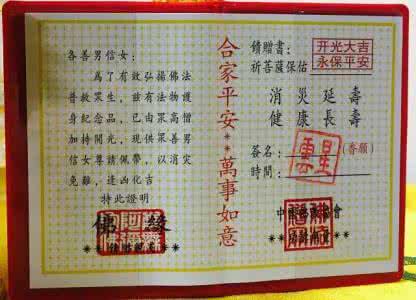 各善男信女：
為了有效弘揚佛法
普救眾生，茲有法物護
身紀念品，已由眾高僧
加持開光，現供眾善男
信女尊請佩帶，以消災
免難，逢凶化吉
特此證明
佛緣
合家平安**萬事如意
饋贈書：
祈菩薩保佑
开光大吉
永保平安
消災延壽
健康長壽
簽名：
(香願)
時間：
星雲